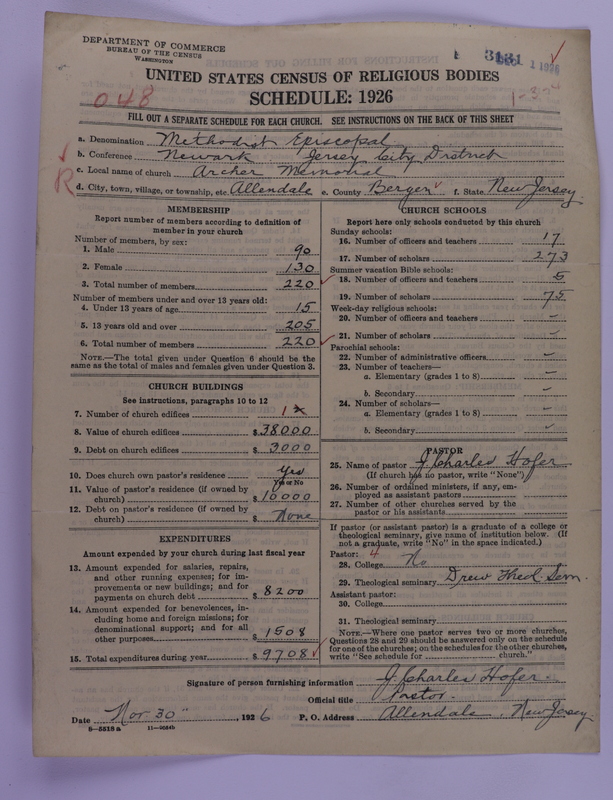 DEPARTMENT OF COMMERCE
BUREAU OF THE CENSUS
WASHINGTON
1 1926
UNITED STATES CENSUS OF RELIGIOUS BODIES
SCHEDULE: 1926
048
FILL OUT A SEPARATE SCHEDULE FOR EACH CHURCH. SEE INSTRUCTIONS ON THE BACK OF THIS SHEET
a. Denomination Methodist Episcopal
b. Conference Newark Jersey City District
c. Local name of church Archer Memorial
R
d. City, town, village, or township, etc. Allendale e. County Bergen f. State New Jersey
MEMBERSHIP
Report number of members according to definition of
member in your church
Number of members, by sex:
1. Male 90
2. Female 130
3. Total number of members 220
Number of members under and over 13 years old:
4. Under 13 years of age 15
5. 13 years old and over 205
6. Total number of members 220
NOTE.—The total given under Question 6 should be the
same as the total of males and females given under Question 3.
CHURCH BUILDINGS
See instructions, paragraphs 10 to 12
7. Number of church edifices 1
8. Value of church edifices $ 38000
9. Debt on church edifices $ 3000
10. Does church own pastor's residence Yes
Yes or No
11. Value of pastor's residence (if owned by
church) $ 10000
12. Debt on pastor's residence (if owned by
church) $ None
EXPENDITURES
Amount expended by your church during last fiscal year
13. Amount expended for salaries, repairs,
and other running expenses; for im-
provements or new buildings; and for
payments on church debt $ 8200
14. Amount expended for benevolences, in-
cluding home and foreign missions; for
denominational support; and for all
other purposes $ 1508
15. Total expenditures during year $ 9708
CHURCH SCHOOLS
Report here only schools conducted by this church
Sunday schools:
16. Number of officers and teachers 17
17. Number of scholars 273
Summer vacation Bible schools:
18. Number of officers and teachers 6
19. Number of scholars 75
Week-day religious schools:
20. Number of officers and teachers –
21. Number of scholars –
Parochial schools:
22. Number of administrative officers –
23. Number of teachers—
a. Elementary (grades 1 to 8) –
b. Secondary –
24. Number of scholars—
a. Elementary (grades 1 to 8) –
b. Secondary –
PASTOR
25. Name of pastor J. Charles Hofer
(If church has no pastor, write "None")
26. Number of ordained ministers, if any, em-
ployed as assistant pastors
27. Number of other churches served by the
pastor or his assistants
If pastor (or assistant pastor) is a graduate of a college or
theological seminary, give name of institution below. (If
not a graduate, write "No" in the space indicated.)
Pastor: 4
28. College No
29. Theological seminary Drew Theol. Sem.
Assistant pastor:
30. College
31. Theological seminary
NOTE.—Where one pastor serves two or more churches,
Questions 28 and 29 should be answered only on the schedule
for one of the churches; on the schedules for the other churches,
write "See schedule for church."
Signature of person furnishing information J. Charles Hofer
Official title Pastor.
Date Nov 30 , 1926 P. O. Address Allendale, New Jersey
8—5518a